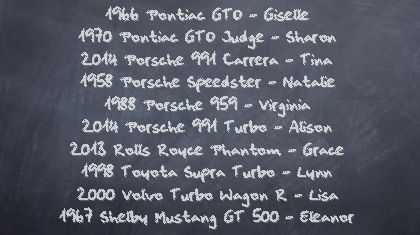 1966 Pontiac GTO - Giselle
1970 Pontiac GTO Judge - Sharon
2014 Porsche 991 Carrera - Tina
1958 Porsche Speedster - Natalie
1988 Porsche 959 - Virginia
2014 Porsche 991 Turbo - Alison
2013 Rolls Royce Phantom - Grace
1998 Toyota Supra Turbo - Lynn
2000 Volvo Turbo Wagon R - Lisa
1967 Shelby Mustang GT 500 - Eleanor